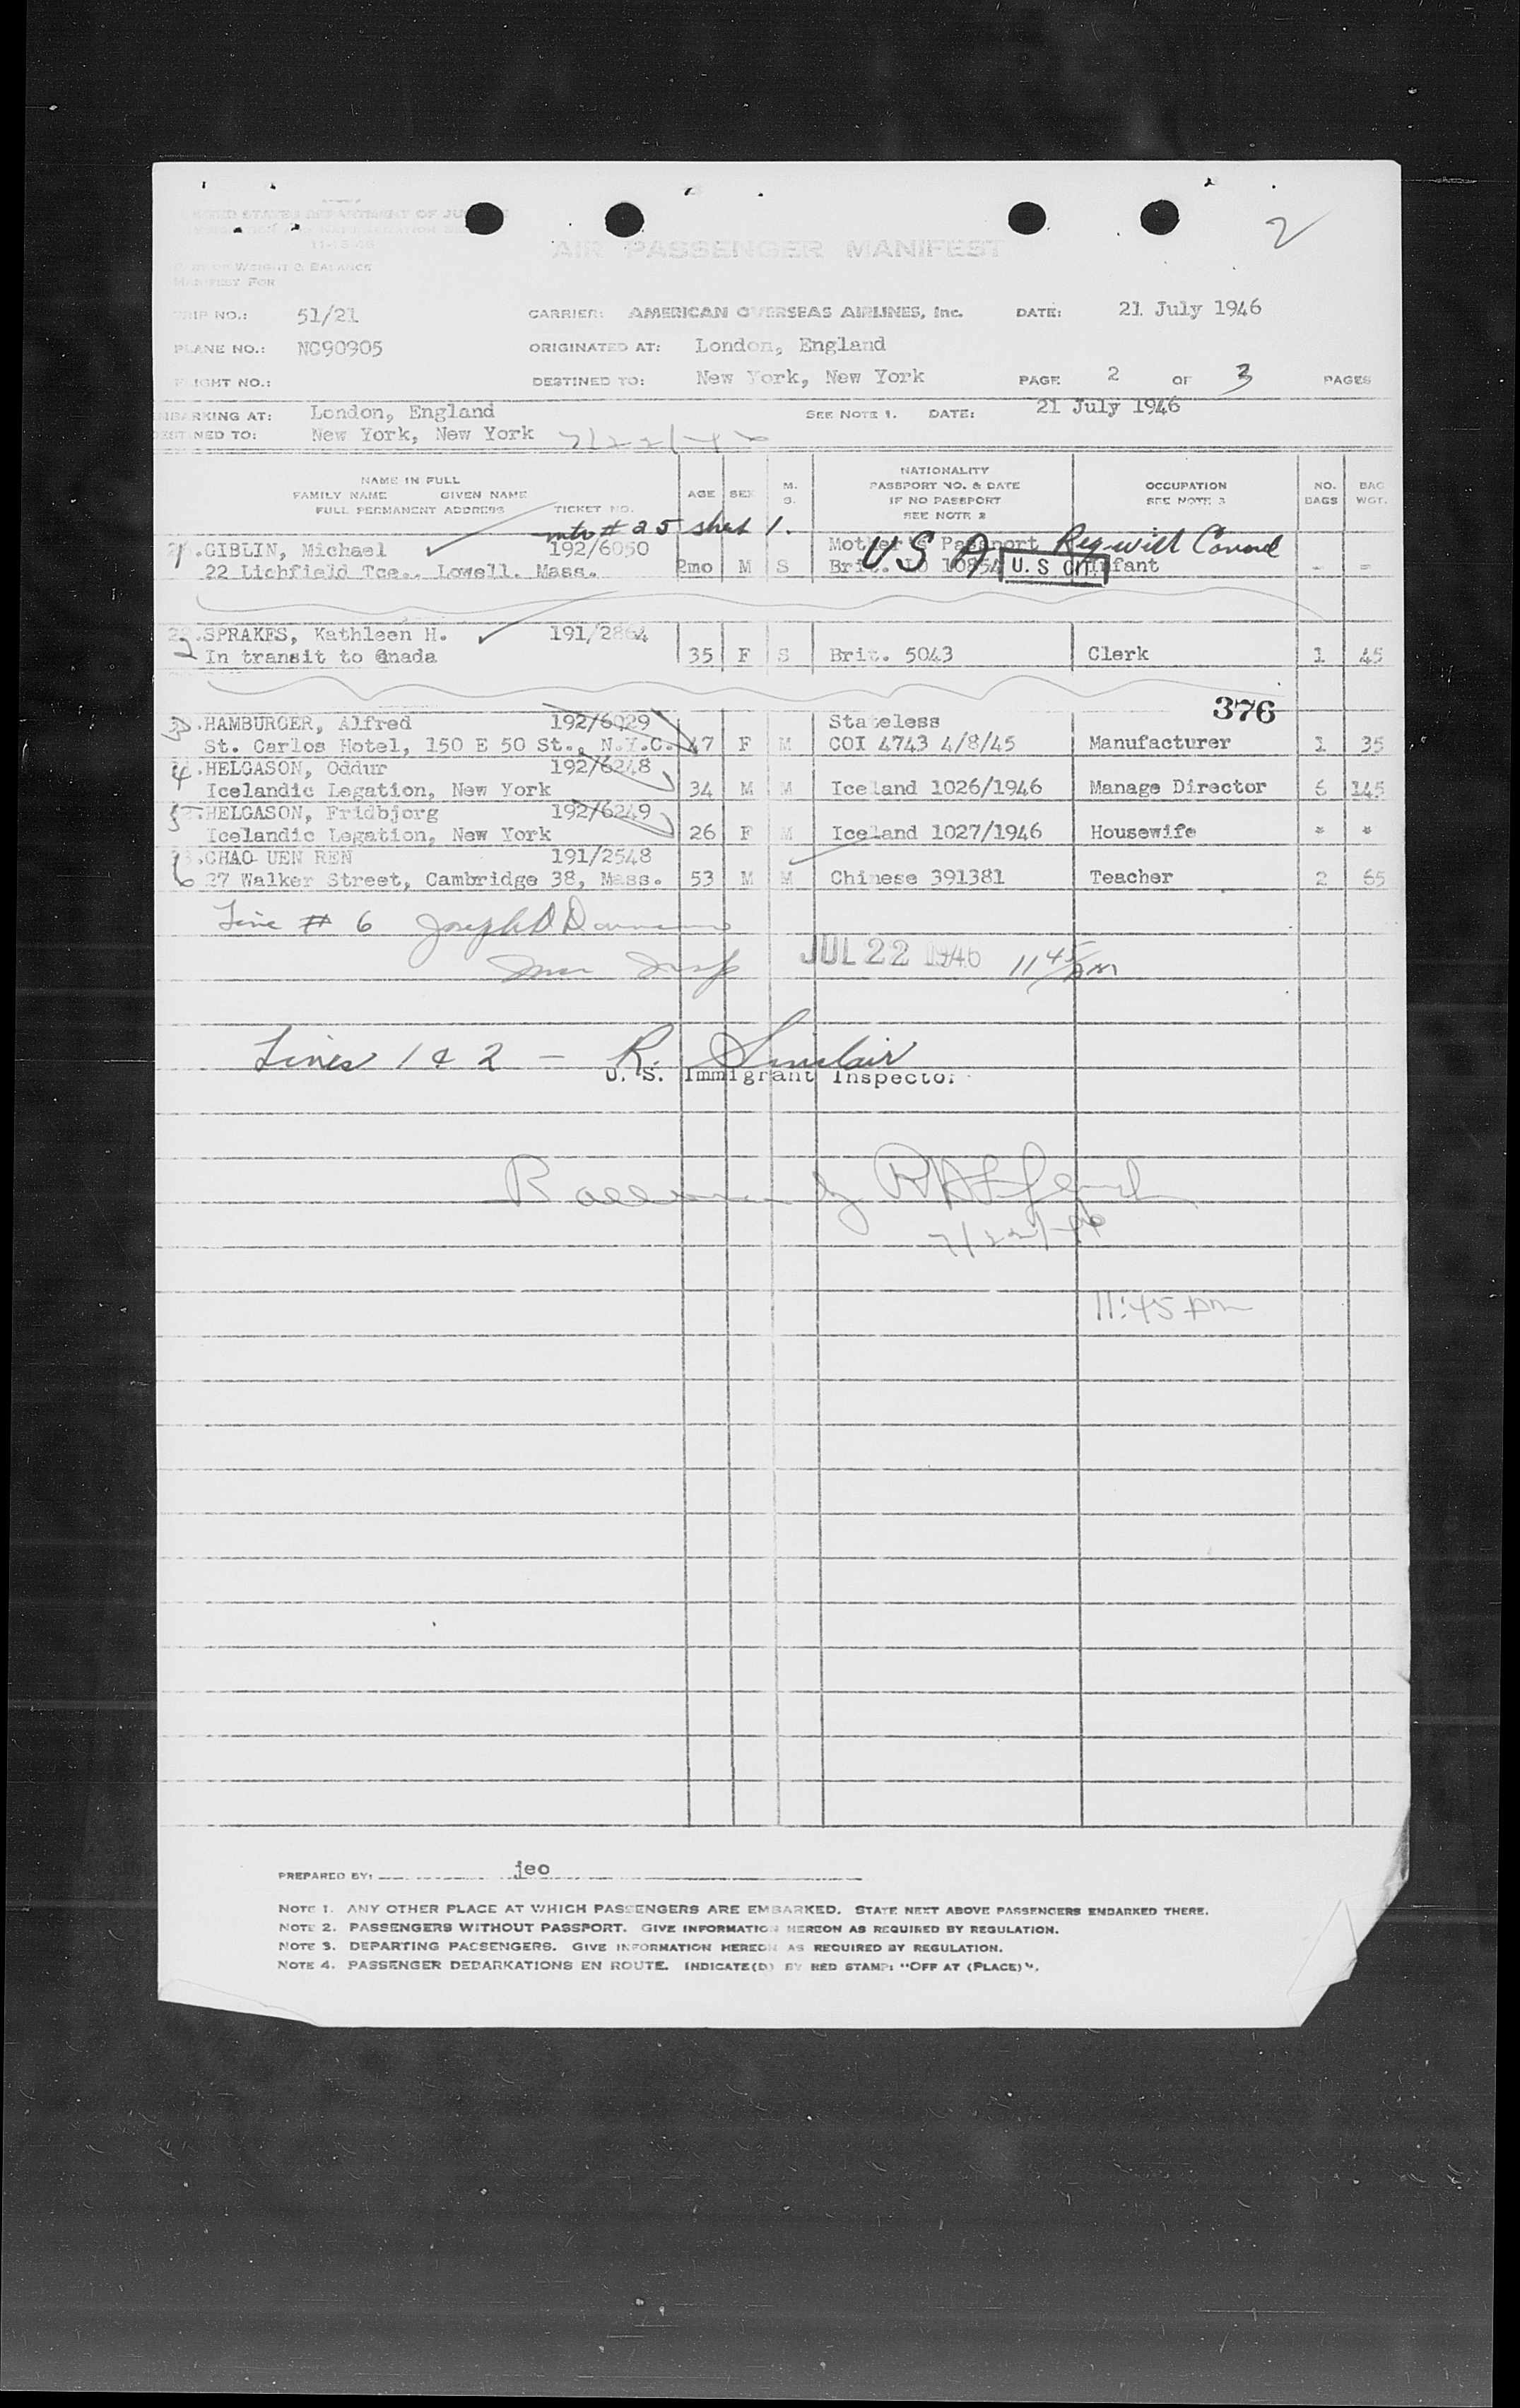 2
UNITED STATES DEPARTMENT OF JUSTICE
11-15-45
AIR PASSENGER MANIFEST
WEIGHT & BALANCE
MANIFEST FOR
TRIP NO.: 51/21 CARRIER: AMERICAN OVERSEAS AIRLINES, Inc. DATE: 21 July 1946
PLANE NO.: NC90905 ORIGINATED AT: London, England
FLIGHT NO.: DESTINED TO: New York, New York PAGE 2 OF 3 PAGES
EMBARKING AT: London, England SEE NOTE 1. DATE: 21 July 1946
DESTINED TO: New York, New York 7/22/46
NAME IN FULL
FAMILY NAME GIVEN NAME
FULL PERMANENT ADDRESS TICKET NO. AGE SEX M. S. NATIONALITY PASSPORT NO. & DATE IF NO PASSPORT SEE NOTE 2 OCCUPATION SEE NOTE 3 NO. BAGS BAG WGT.
# 25 sheet 1.
1 .GIBLIN, Michael 192/6050 Mother's Passport
22 Lichfield Tce., Lowell. Mass. 2mo M S Brit. Infant - -
U S A U. S CIT.
2 .SPRAKES, Kathleen H. 191/2864
In transit to Canada 35 F S Brit. 5043 Clerk 1 45
376
3 .HAMBURGER, Alfred 192/6029 Stateless
St. Carlos Hotel, 150 E 50 St., N.Y.C. 47 F M COI 4743 4/8/45 Manufacturer 1 35
4 .HELGASON, Oddur 192/6248
Icelandic Legation, New York 34 M M Iceland 1026/1946 Manage Director 6 145
5 .HELGASON, Fridbjorg 192/6249
Icelandic Legation, New York 26 F M Iceland 1027/1946 Housewife * *
6 .CHAO UEN REN 191/2548
27 Walker Street, Cambridge 38, Mass. 53 M M Chinese 391381 Teacher 2 65
Line # 6 Joseph D
Imm Insp JUL 22 1946 11 45 PM
Lines 1 & 2 - R. Sinclair
U. S. Immigrant Inspector
by
7/22/46
11:45 pm
PREPARED BY: jeo
NOTE 1. ANY OTHER PLACE AT WHICH PASSENGERS ARE EMBARKED. STATE NEXT ABOVE PASSENGERS EMBARKED THERE.
NOTE 2. PASSENGERS WITHOUT PASSPORT. GIVE INFORMATION HEREON AS REQUIRED BY REGULATION.
NOTE 3. DEPARTING PASSENGERS. GIVE INFORMATION HEREON AS REQUIRED BY REGULATION.
NOTE 4. PASSENGER DEBARKATIONS EN ROUTE. INDICATE(D) BY RED STAMP: "OFF AT (PLACE)".